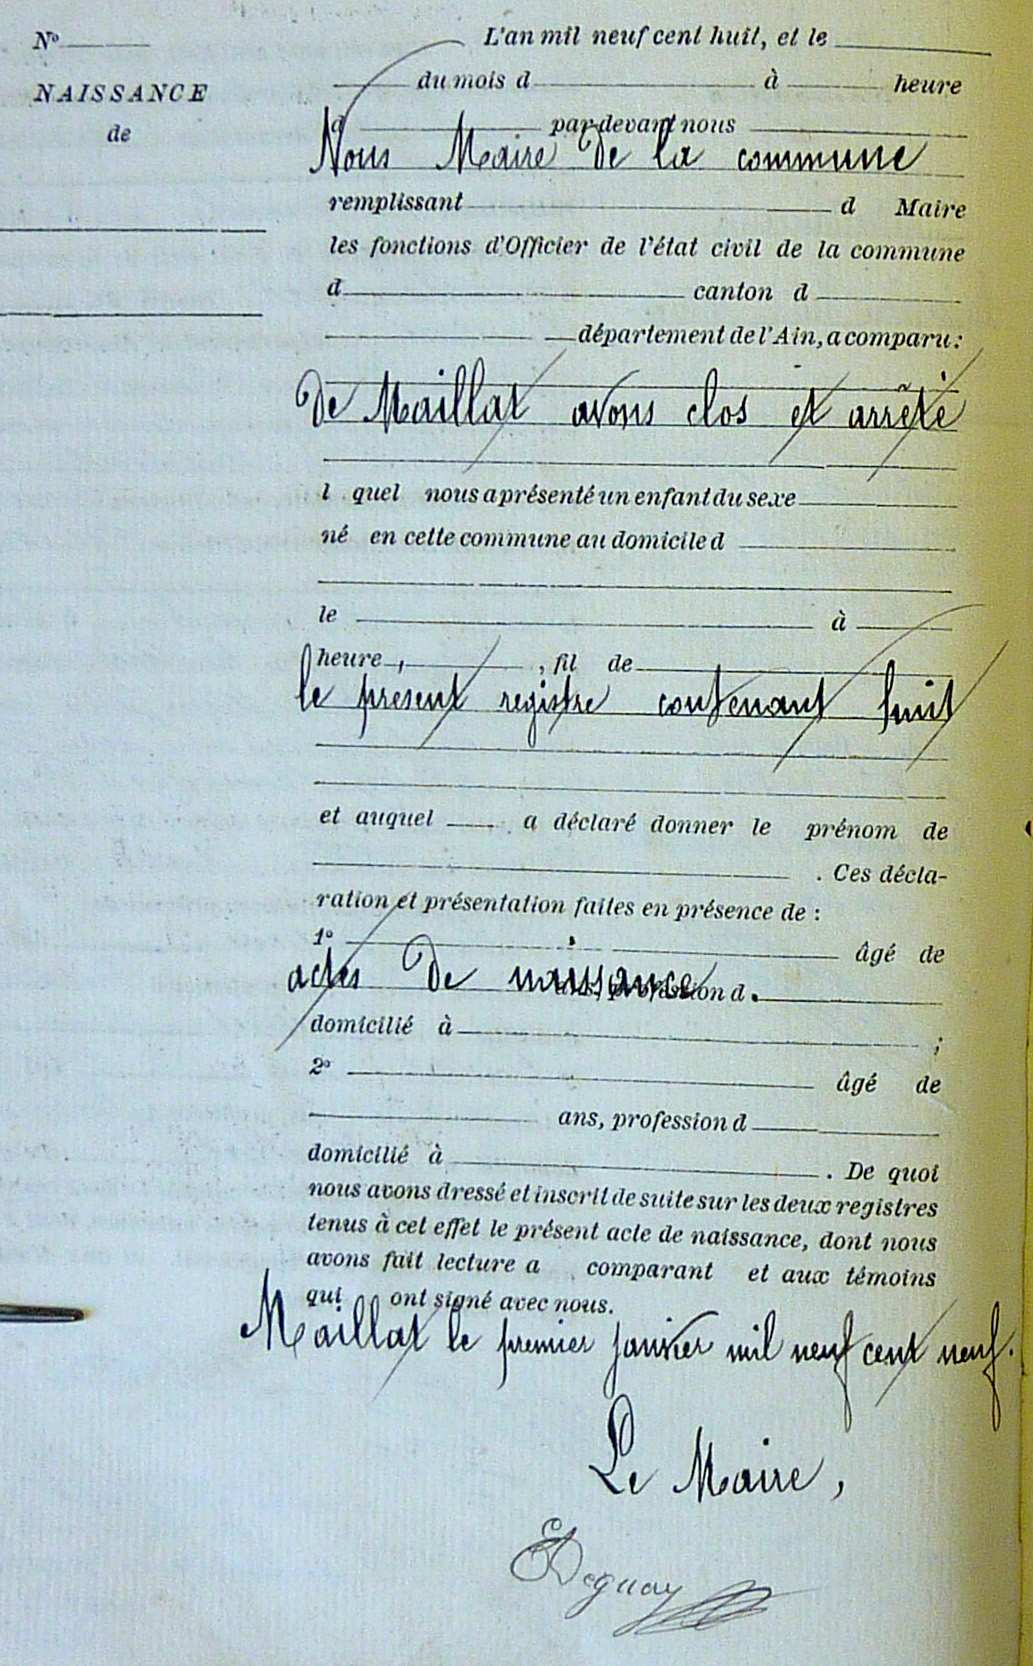 Nº
NAISSANCE
de
L'an mil neuf cent huit, et le
du mois d à heure
par devant nous
Nous Maire de la commune
remplissant d Maire
les fonctions d'Officier de l'état civil de la commune
d canton d
département de l'Ain, a comparu :
de Maillat avons clos et arrêté
l quel nous a présenté un enfant du sexe
né en cette commune au domicile d
le à
heure , , fil de
le présent registre contenant huit
et auquel a déclaré donner le prénom de
. Ces décla-
ration et présentation faites en présence de :
1º âgé de
actes de naissance
ans, profession d
domicilié à ;
2º âgé de
ans, profession d
domicilié à . De quoi
nous avons dressé et inscrit de suite sur les deux registres
tenus à cet effet le présent acte de naissance, dont nous
avons fait lecture a comparant et aux témoins
qui ont signé avec nous.
Maillat le premier janvier mil neuf cent neuf.
Le Maire,